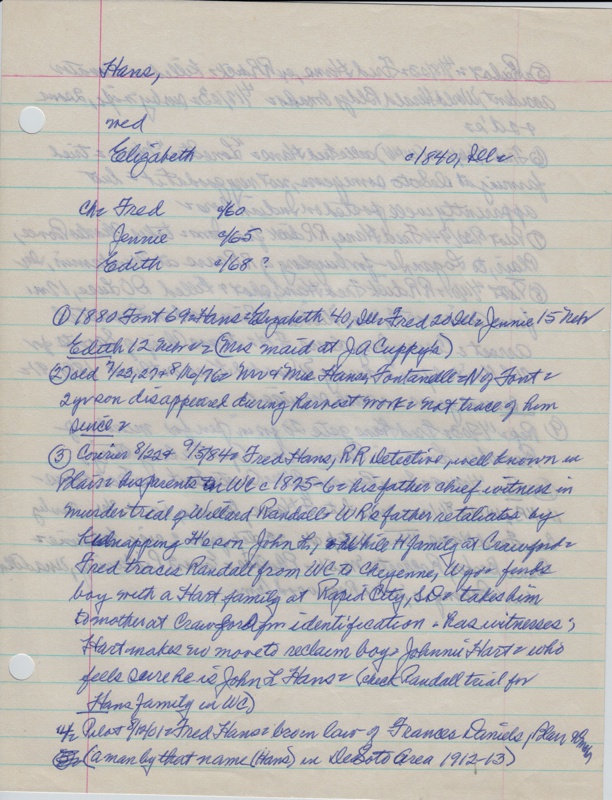 Hans,
med
Elizabeth c1840, Ill=
ch= Fred c/60
Jennie c/65
Edith c/68 ?
① 1880 Font 69= Hans= Elizabeth 40, Ill= Fred 20 Ill= Jennie 15 Nebr
Edith 12 Nebr = (Mrs maid at JA Cuppy's)
② old 7/23, 27+ 8/16/76= Mr & Mrs Hans, Fontanelle= N of Font=
2 yr son disappeared during harvest work= not trace of him
since=
③ Courier 8/22+ 9/5/84= Fred Hans, RR Detective, well known in
Blair= his parents in WC c 1875-6= his father chief witness in
murder trial of Willard Randall= WR's father retaliates by
kidnapping Hs son John L, while H family at Crawford=
Fred traces Randall from WC to Cheyenne, Wyo= finds
boy with a Hart family at Rapid City, SD= takes him
to mother at Crawford for identification = has witnesses;
Hart makes no move to reclaim boy= Johnnie Hart= who
feels sure he is John L Hans= (check Randall trial for
Hans family in WC)
4/2 Pilot 9/12/01= Fred Hans= bro in law of Frances Daniels, Blair
(a man by that name (Hans) in DeSoto area 1912-13)